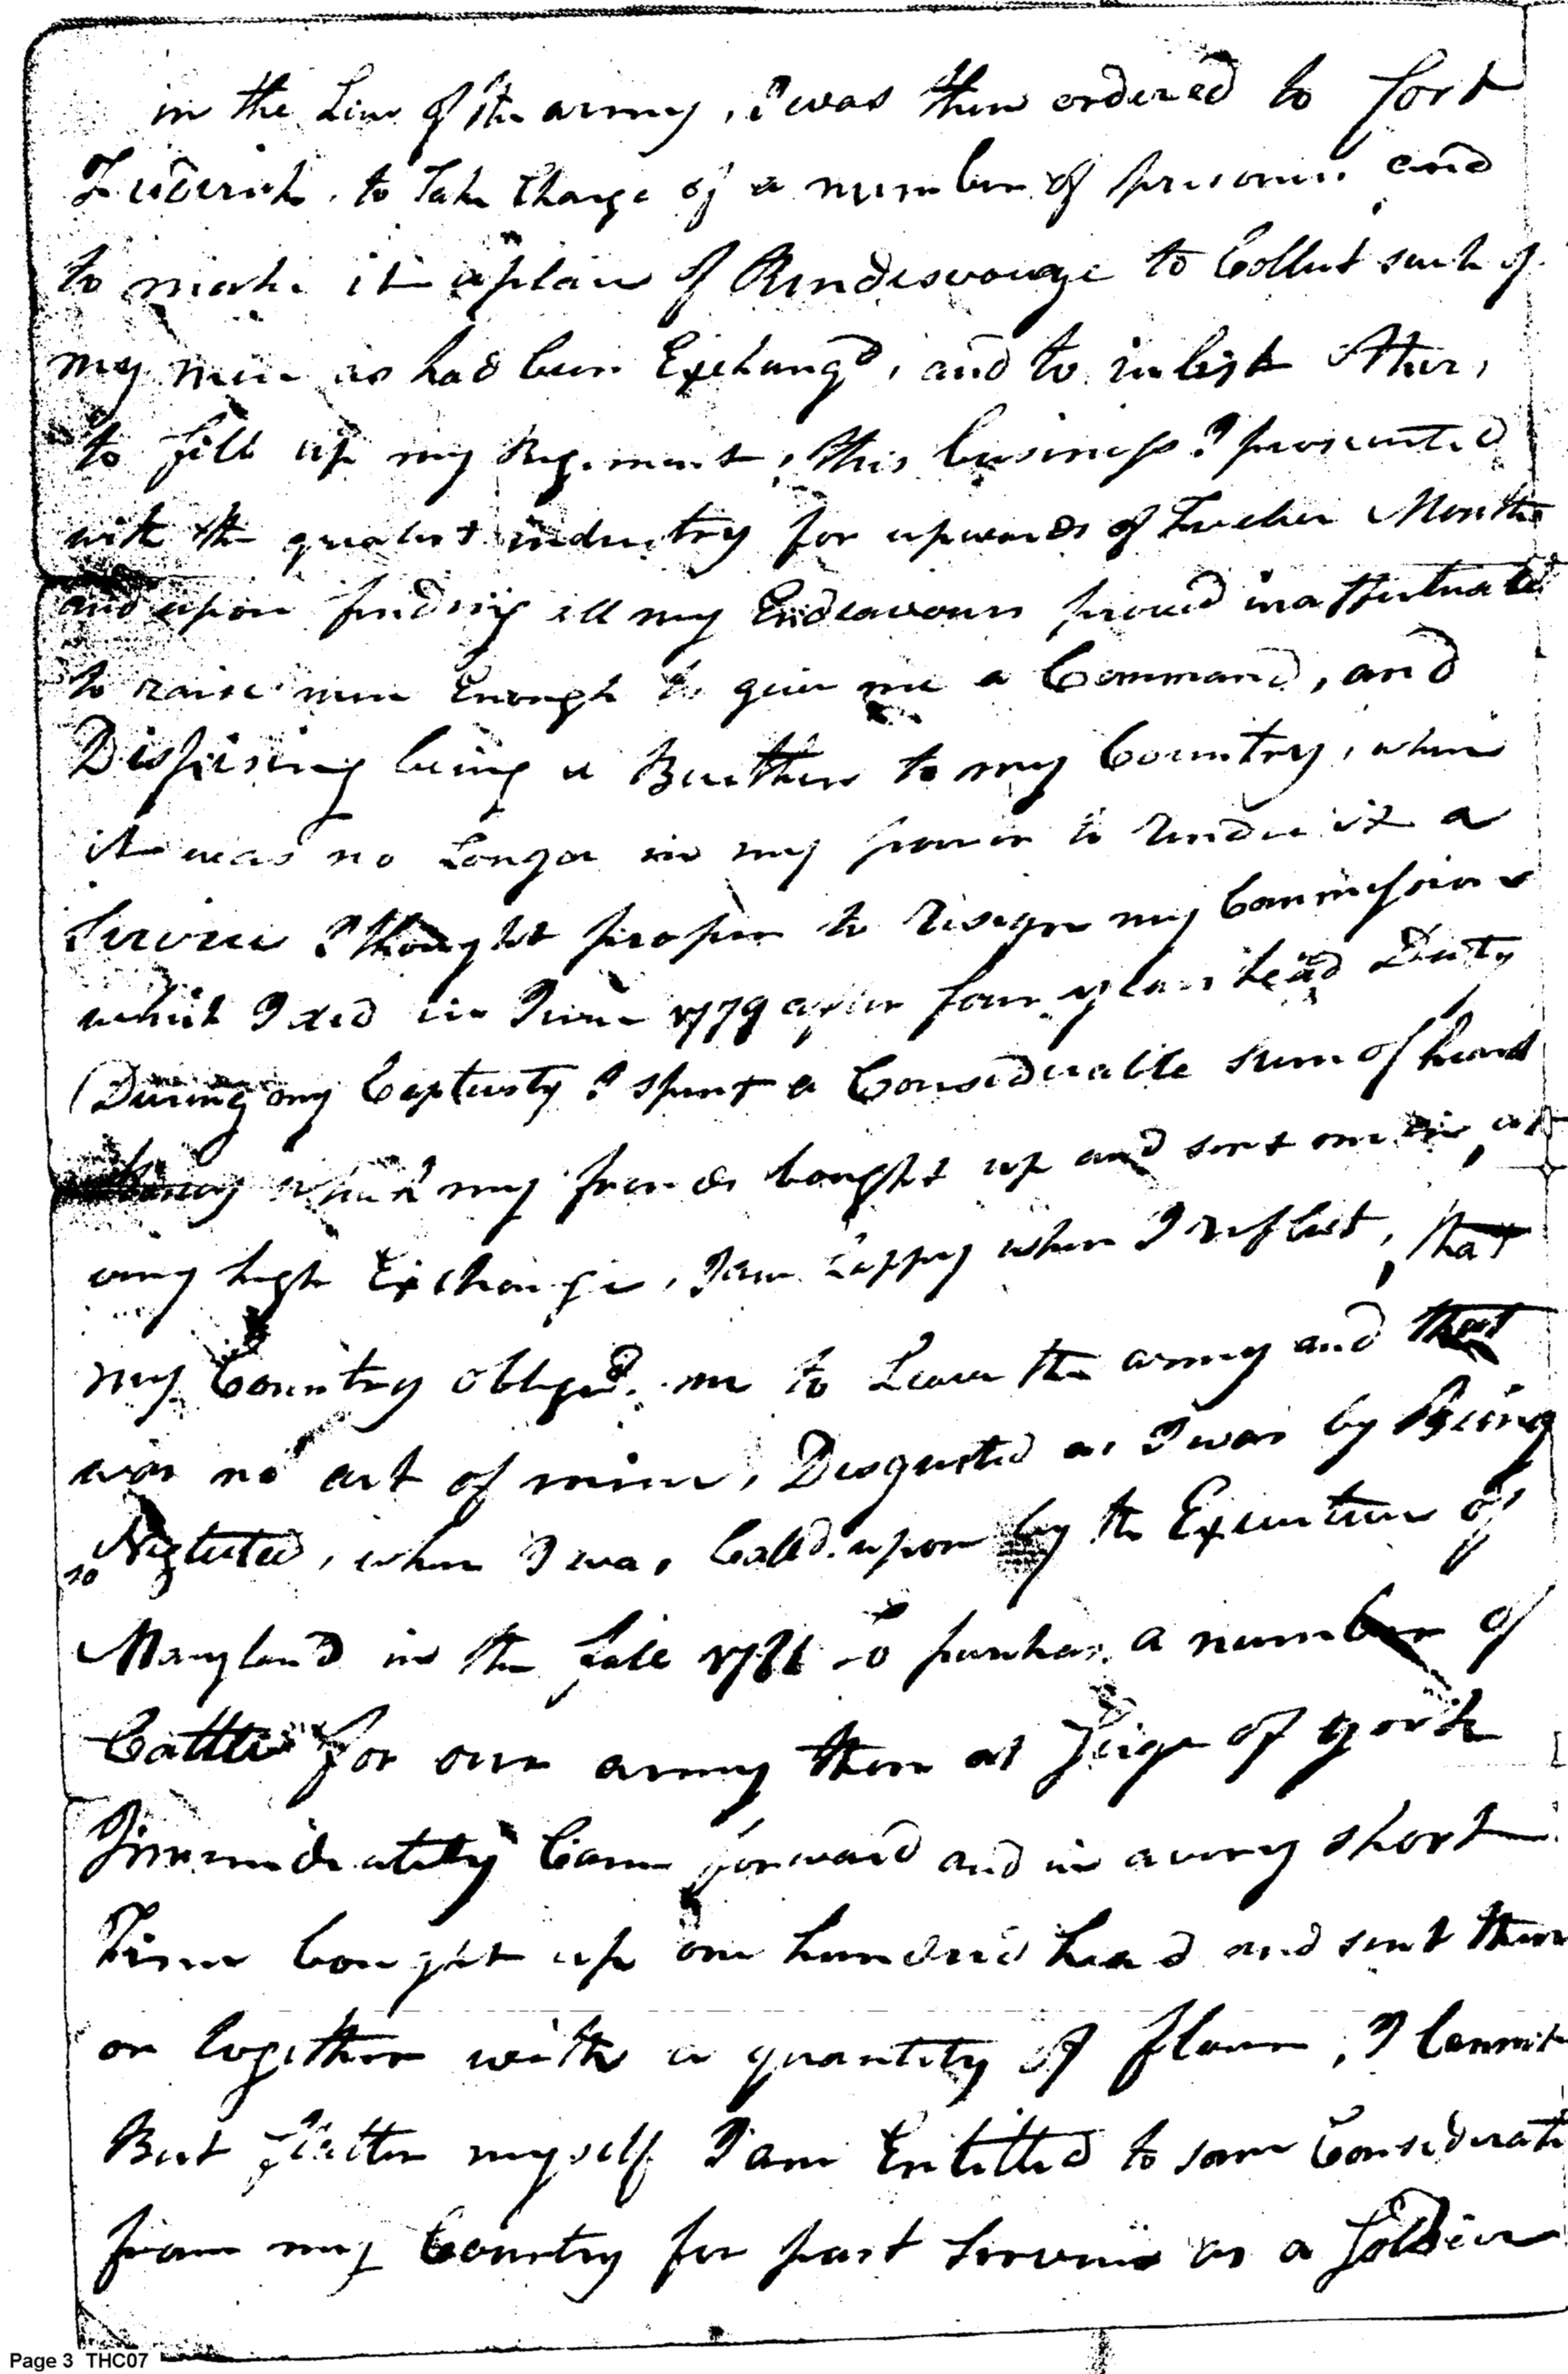 in the Line of the army, I was then ordered to fort
Frederick, to Take Charge of a number of prisoners and
to make it a place of Rendesvouze to Collect such of
my men as had been Exchangd, and to inlist others,
to fill up my Regiment, this business I prosecuted
with the greatest industry for upwards of Twelve Months
and upon finding all my Endeavours proved inaffectuale
to raise men Enough to give me a Command, and
Dispising being a Burthen to my Country, when
it was no Longer in my power to Render it a
Service I thought proper to resign my Commission
which I did in June 1779 after four years head Duty
(During my Captivity I spent a Considerable sum of hard
Money which my friends bought up and sent me in, at
very high Exchange, I am happy when I reflect, that
my Country obliged me to Leave the army and that
was no act of mine, Disgusted as I was by Being
so Neglected, when I was Calld upon by the Executive of
Maryland in the fall 1781 to purchase a number of
Cattle for our army then at Seige of york
I immediately Came forward and in a very short
Time bought up one hundred head and sent them
on together with a quantity of flour, I Cannot
But flatter myself I am Entitled to some Considerati
from my Country for past Services as a Soldier
Page 3 THC07